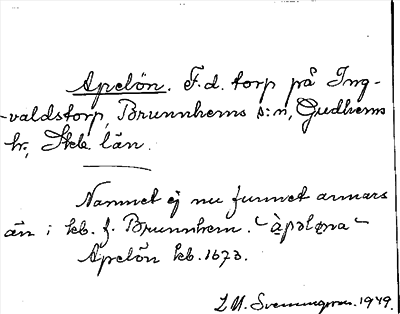 Apelön. F.d. torp på Ing-
-valdstorp, Brunnhems s:n, Gudhems
hr, Skb. län.
Namnet ej nu funnet annars
än i kb. f. Brunnhem. - àpəløna -
Apelön kb. 1673.
L M. Svenungsson. 1949.